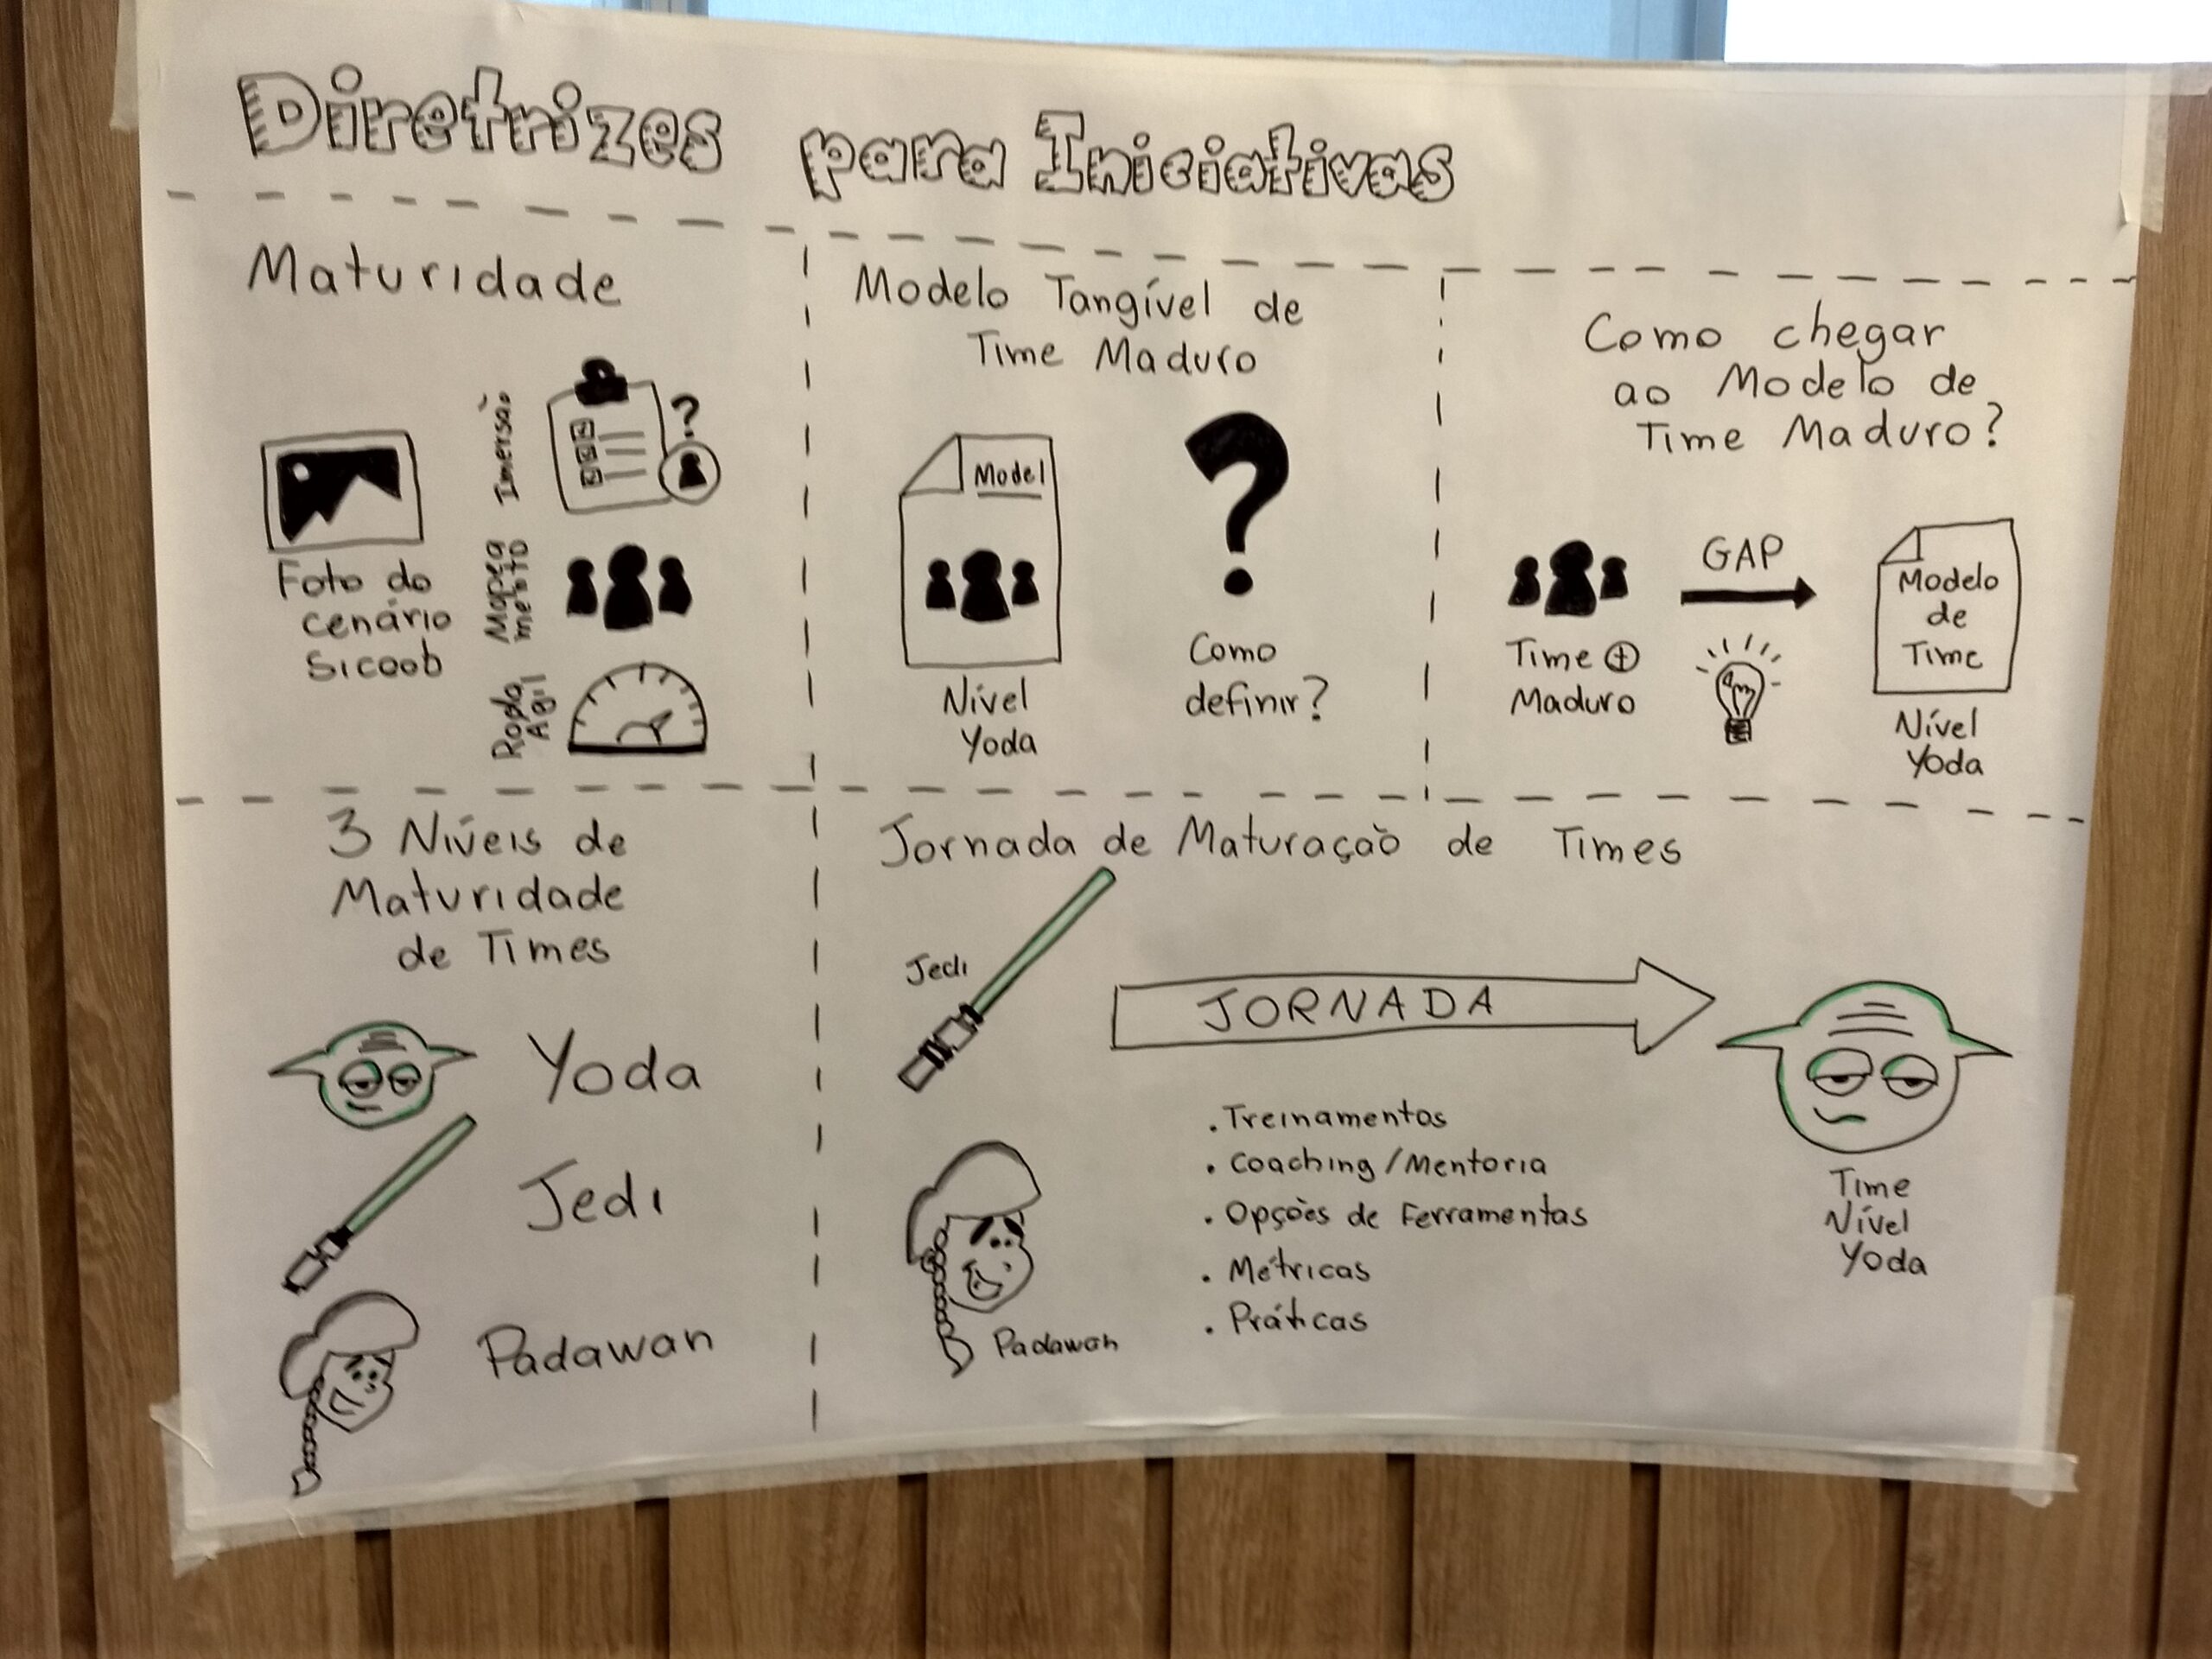 Diretrizes para Iniciativas
Maturidade
Foto do
cenário
Sicoob
Imersão
Mapea
mento
Roda
Ágil
?
Modelo Tangível de
Time Maduro
Model
Nível
Yoda
?
Como
definir?
Como chegar
ao Modelo de
Time Maduro?
Time +
Maduro
GAP
Modelo
de
Time
Nível
Yoda
3 Níveis de
Maturidade
de Times
Yoda
Jedi
Padawan
Jornada de Maturação de Times
Jedi
JORNADA
Padawan
. Treinamentos
. Coaching/Mentoria
. Opções de Ferramentas
. Métricas
. Práticas
Time
Nível
Yoda